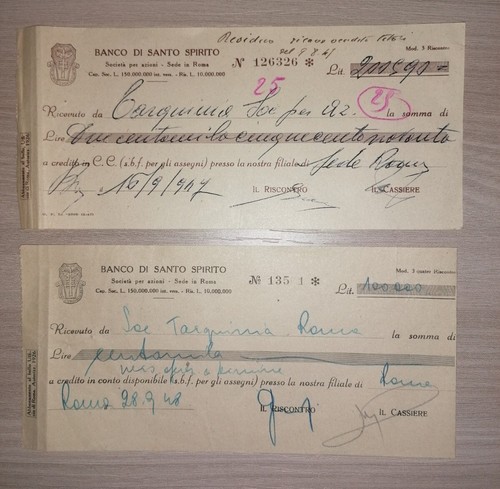 BANCO DI SANTO SPIRITO
Società per azioni - Sede in Roma
Cap. Soc. L. 150.000.000 int. vers. - Ris. L. 10.000.000
Residuo ricavo vendita titoli
del 9.8.47
Mod. 3 Riscontro
N 126326 *
Lit.
25
25
Ricevuto da Tarquinia Soc per Az. la somma di
Lire
a credito in C. C. (s.b.f. per gli assegni) presso la nostra filiale di Sede Roma
16/9/947
IL RISCONTRO
IL CASSIERE
BANCO DI SANTO SPIRITO
Società per azioni - Sede in Roma
Cap. Soc. L. 150.000.000 int. vers. - Ris. L. 10.000.000
Mod. 3 Riscontro
№ 135 1 *
Lit. 100000
Ricevuto da Soc Tarquinia Roma la somma di
Lire centomila
a credito in conto disponibile (s.b.f. per gli assegni) presso la nostra filiale di Roma
Roma 28.9.48
IL RISCONTRO
IL CASSIERE